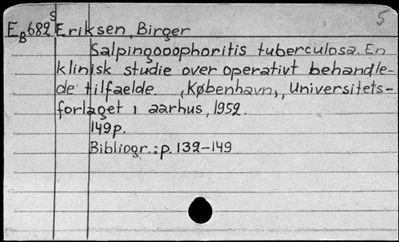 S 5
EB682 Eriksen, Birger
Salpingooophoritis tuberculosa. En
klinisk studie over operativt behandle-
de tilfaelde. ,København,, Universitets-
forlaget i aarhus, 1952.
149p.
Bibliogr.: p. 132-149